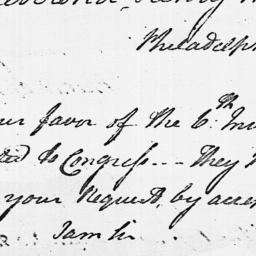 Philadelph
ur favor of the 6th In
ted to Congress... They
your Request, by acce
I am Sir